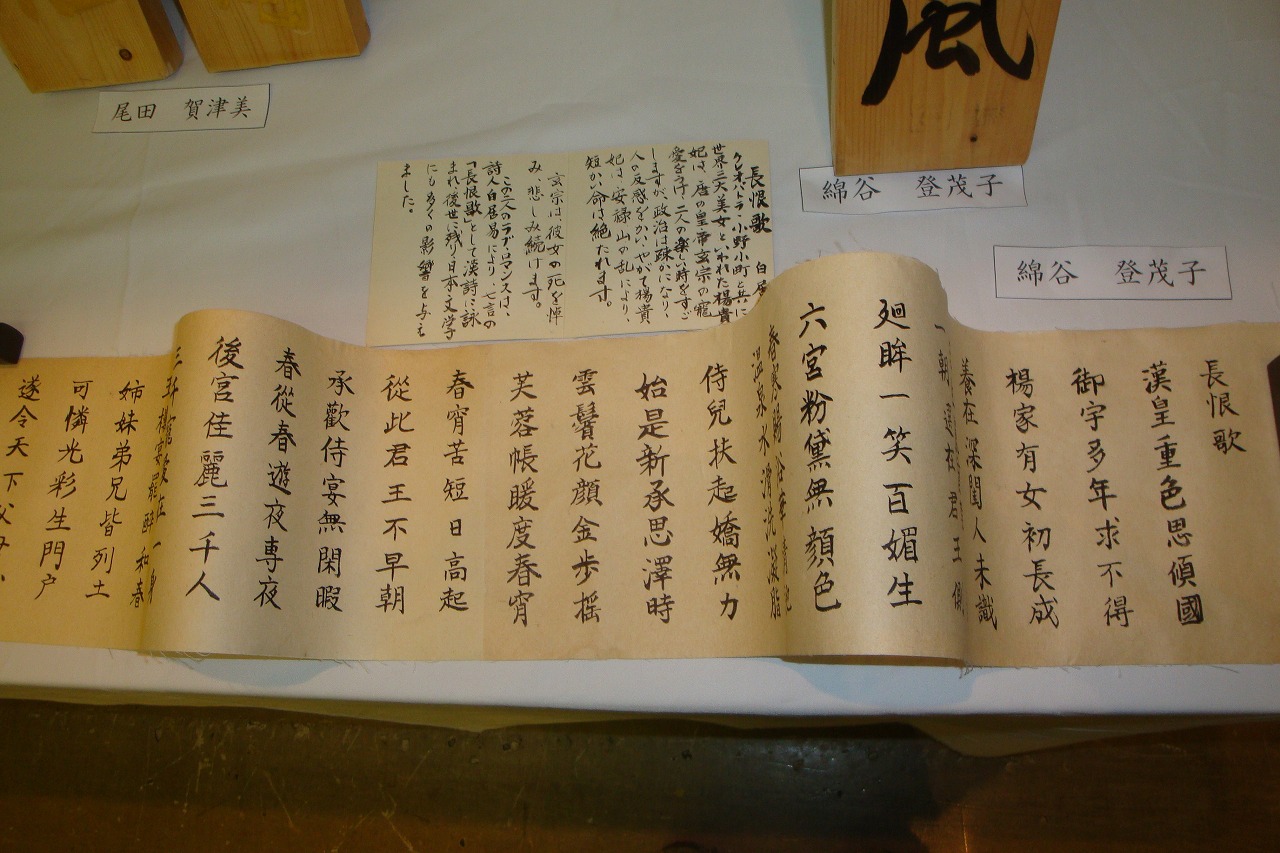 風
尾田 賀津美
綿谷 登茂子
綿谷 登茂子
長恨歌 白居
クレオパトラ・小野小町と共に
世界三大美女といわれた楊貴
妃は、唐の皇帝玄宗の寵
愛をうけ、二人の楽しい時をすご
しますが、政治は疎かになり、
人の反感をかい、やがて楊貴
妃は安禄山の乱により、
短かい命は絶たれます。
玄宗は彼女の死を悼
み、悲しみ続けます。
この二人のラブ・ロマンスは、
詩人白居易により、七言の
「長恨歌」として漢詩に詠
まれ後世に残り日本文学
にも多くの影響を与え
ました。
長恨歌
漢皇重色思傾國
御宇多年求不得
楊家有女初長成
養在深閨人未識
一朝選在君王側
廻眸一笑百媚生
六宮粉黛無顔色
春寒賜浴華清池
温泉水滑洗凝脂
侍兒扶起嬌無力
始是新承思澤時
雲鬢花顔金歩搖
芙蓉帳暖度春宵
春宵苦短日高起
從此君王不早朝
承歡侍宴無閑暇
春從春遊夜専夜
後宮佳麗三千人
三千寵愛在一身
宴罷醉和春
姉妹弟兄皆列土
可憐光彩生門户
遂令天下父母